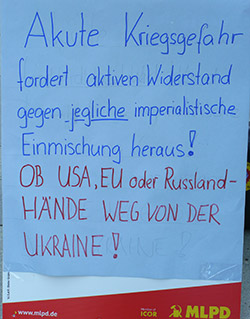 Akute Kriegsgefahr
fordert aktiven Widerstand
gegen jegliche imperialistische
Einmischung heraus!
OB USA, EU oder Russland-
HÄNDE WEG VON DER
UKRAINE!
www.mlpd.de
ICOR
MLPD